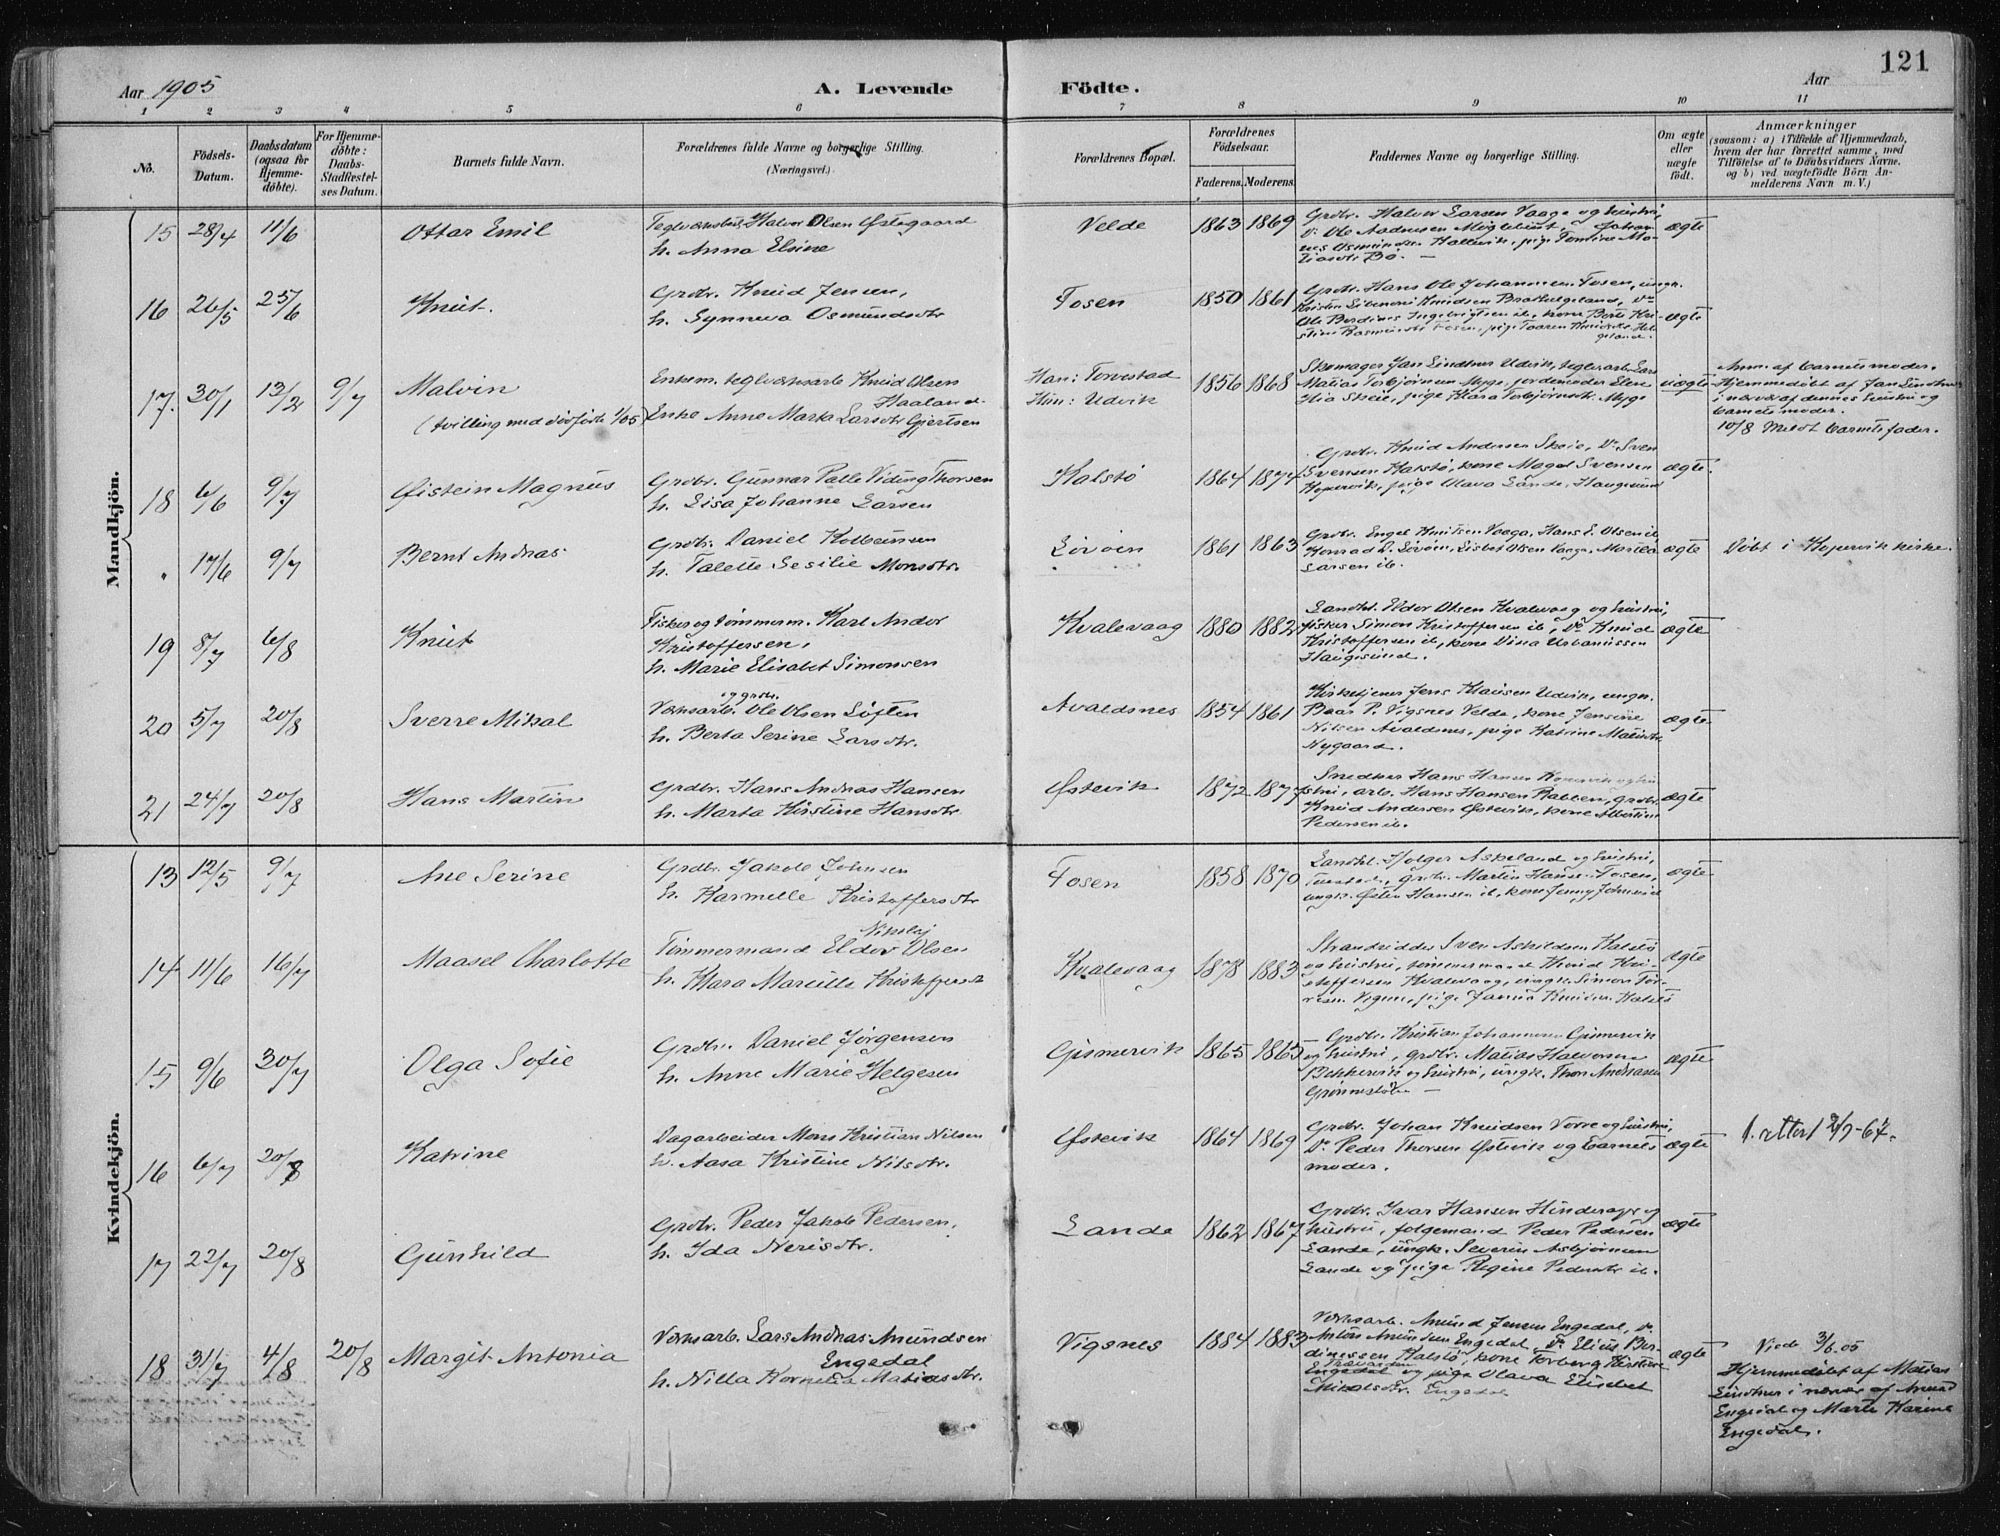 121
Aar 1905
A. Levende
Födte.
Aar
1 2 3 4 5 6 7 8 9 10 11
No.
Födsels-Datum.
Daabsdatum (ogsaa for Hjemmedöbte).
For Hjemmedöbte: Daabs-Stadfæstelses Datum.
Barnets fulde Navn.
Forældrenes fulde Navne og borgerlige Stilling.
(Næringsvei.)
Forældrenes Bopæl.
Forældrenes Födselsaar.
Faderens. Moderens.
Faddernes Navne og borgerlige Stilling.
Om ægte eller uægte födt.
Anmærkninger
(saasom: a) i Tilfælde af Hjemmedaab, hvem der har forrettet samme, med Tilföielse af to Daabsvidners Navne, og b) ved uægtefödte Börn Anmelderens Navn m. V.)
Mandkjön.
15 28/4 11/6 Ottar Emil
Teglværksbest. Halvor Olsen Østegaard
h. Anna Elsine
Velde 1863 1869
Grdbr. Halvor Larsen Vaage og hustru,
ægte
16 26/5 25/6 Knut.
Grdbr. Knud Jensen,
h. Synneva Osmundsdtr
Fosen 1850 1861
Grdbr. Hans Ole Johannesen Fosen, ungk.
ægte
17. 30/1 13/2 9/7 Malvin
(tvilling med dødfødt 1/05)
Enkem. teglværksarb Knud Olsen
Haaland
Enke Anne Marta Larsdtr Gjertsen
Han: Torvestad
Hun: Udvik
1856 1868
Skomager Jan Lindtner Udvik, teglv.arb. Lars
Matias Torbjørnsen Myge, jordemoder Elene
Mia Skeie, pige Klara Torbjørnsdtr. Myge
uægte
Anm. af barnets moder.
Hjemmedøbt af Jan Lindtner
i nærvær af dennes hustru og
barnets moder.
10/8 Meldt barnets fader.
18 6/6 9/7 Øistein Magnus
Grdbr. Gunnar Palle Viding Thorsen
h. Lisa Johanne Larsen
Kalstø 1864 1874
Grdbr. Knud Andersen Skeie, Do Sven
Svensen Kalstø, kone Magel Svensen
Kopervik, pige Olava Lande, Haugesund
ægte.
" 17/6 9/7 Bernt Andnas.
Grdbr. Daniel Kolbeinsen
h. Talette Sesilie Monsdtr.
Sørøen 1861 1863
Grdbr. Engel Knutsen Vaaga, Hans E. Olsen ib
Larsen ib.
ægte
Døbt i Kopervik kirke.
19 8/7 6/8 Knut
Fisker og tømmerm. Karl Andor
Kristoffersen,
h. Marie Elisabet Simonsen
Kvalevaag 1880 1882
Landhl. Eldor Olsen Kvalevaag og hustru,
fisker Simon Kristoffersen ib, Do Knud
Kristoffersen ib, kone Dina Urbanussen
Haugesund.
ægte
20 5/7 20/8 Sverre Mikal
og grdbr.
Værksarb. Ole Olsen Løften
h. Berta Serine Larsdtr.
Avaldsnes 1854 1861
Kirketjener Jens Klausen Udvik, ungk.
Baar P. Vigsnes Velde, kone Jensine
Nilsen Avaldsnes, pige Katrine
Nygaard.
ægte
21 24/7 20/8 Hans Martin
Grdbr. Hans Andnas Hansen
h. Marta Kirstine Hansdtr.
Østevik 1872 1877
Snedker Hans Hansen Kopervik og hustru, arb. Hans Hansen Rabben, grdbr.
Knud Andersen Østevik, kone
Pedersen ib.
ægte
Kvindekjön.
13 12/5 9/7 Ane Serine
Grdbr. Jakob Johnsen
h. Karmelle Kristoffersdtr
Fosen 1858 1870
Landhl. Holger Askeland og hustru,
grdbr. Martin Hansen Fosen,
ungk. Østen Hansen ib, kone Jenny
ægte
14 11/6 16/7 Maasel Charlotte
Nikolaj
Tømmermand Eldor Olsen
h. Klara Marcille Kristoffersdtr
Kvalevaag 1878 1883
Strandridder Sven Askildsen Kalstø
og hustru, tømmermand Knud Kristoffersen Kvalevaag, ungk. Simon
pige Knudsen Kalstø
ægte
15 9/6 30/7 Olga Sofie
Grdbr. Daniel Jørgensen
h. Anne Marie Helgesen
Gismervik 1865 1865
Grdbr. Kristian Johannesen Gismervik
og hustru, grdbr. Matias Halvorsen
og hustru, ungk. Thom Andnasen
ægte
16 6/7 20/8 Katrine
Dagarbeider Mons Kristian Nilsen
h. Aasa Kristine Nilsdtr.
Østevik 1864 1869
Grdbr. Johan Knudsen Vorre og hustru,
Do Peder Thorsen Østevik og barnets
moder.
ægte
f. attest 2/9-67.
17 22/7 20/8 Gunhild
Grdbr. Peder Jakob Pedersen,
h. Ida Nerisdtr.
Lande 1862 1867
Grdbr. Ivar Hansen Hinderager og
hustru, følgemand Peder Pedersen
Lande, ungk. Severin Asbjørnsen
Lande og pige Regine Pedersdtr ib.
ægte
18 31/7 4/8 20/8 Margit Antonia
Værksarb. Lars Andnas Amundsen
Engedal
h. Nilla Kornelia Matiasdtr.
Vigsnes 1884 1883
Værksarb. Amund Jensen Engedal, do
Anton Amundsen Engedal, Do Elius Berdinessen Kalstø, kone Torberg Kirstine
Engedal og pige Olava Elisabet
Mikalsdtr. Engedal
ægte
Viede 3/6.05
Hjemmedøbt af Matias
Lindtner i nærvær af Amund
Engedal og Marte Karine
Engedal.